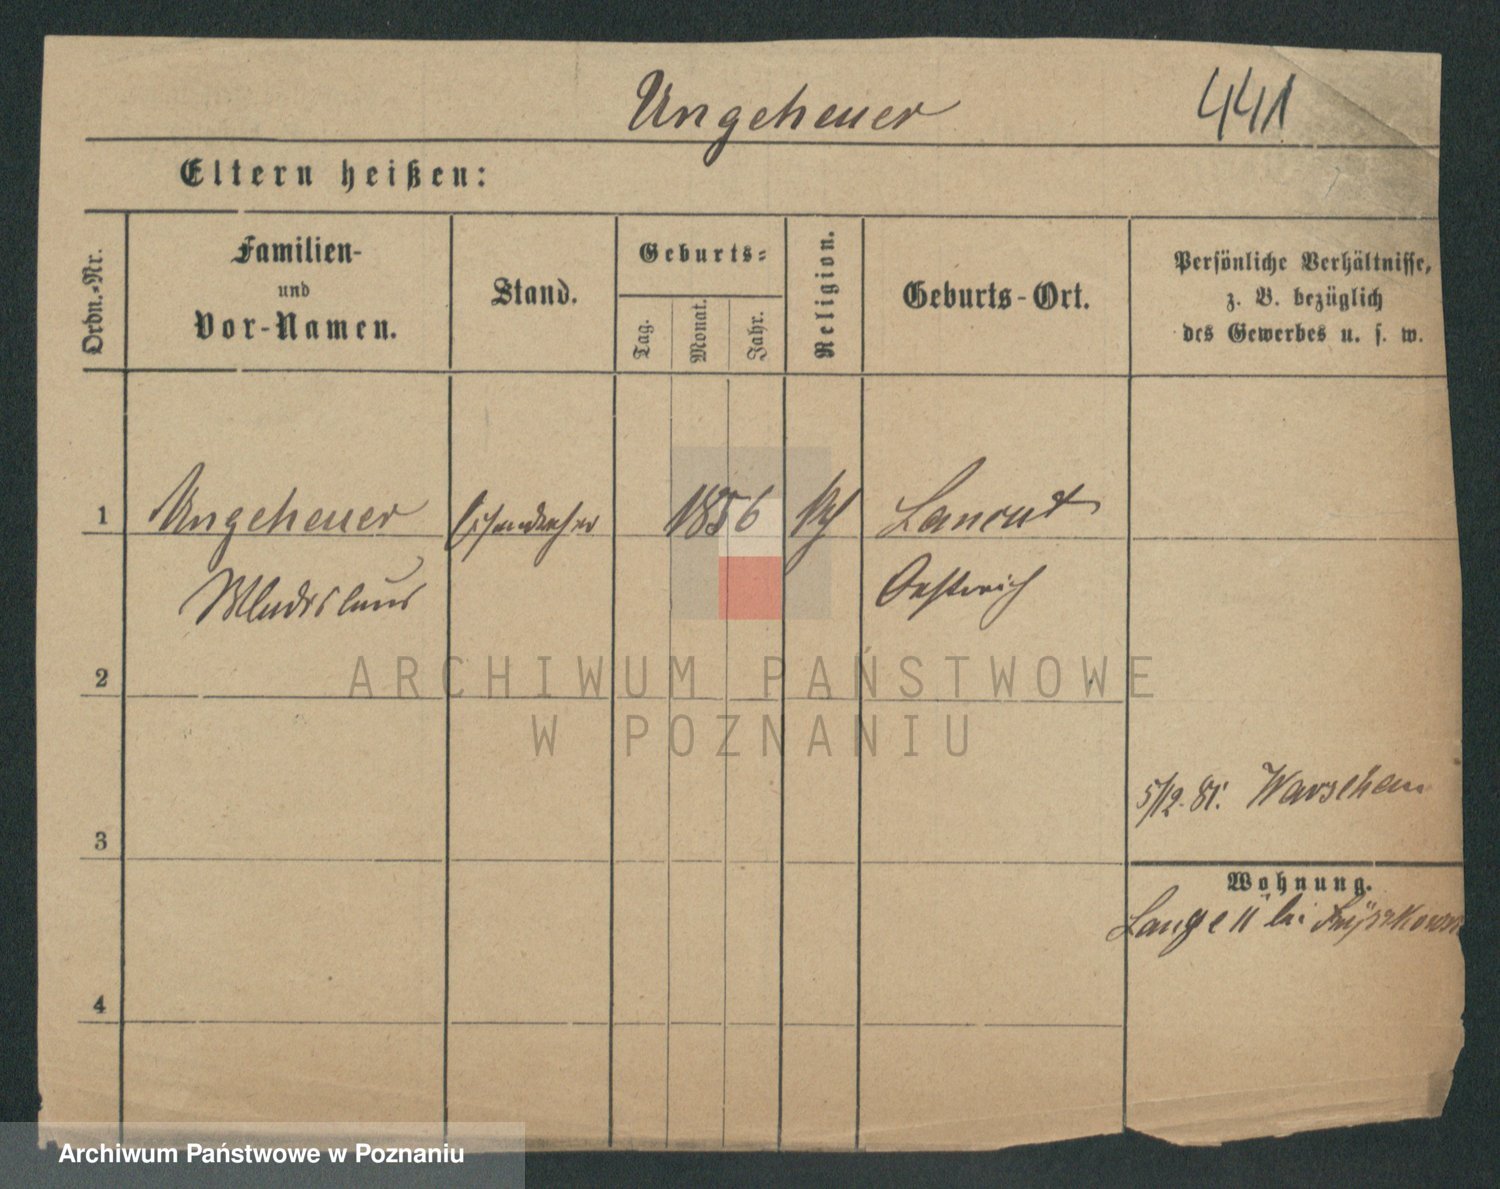 Ungeheuer 441
Eltern heißen:
Ordn.-Nr.
Familien-
und
Vor-Namen.
Stand.
Geburts-
Tag.
Monat.
Jahr.
Religion.
Geburts-Ort.
Persönliche Verhältnisse,
z. B. bezüglich
des Gewerbes u. s. w.
1 Ungeheuer Eisendreher 1856 Lancut
Wladislaus Oestreich
2
ARCHIWUM PAŃSTWOWE
W POZNANIU
5/12. 81. Warschau
3
Wohnung.
Lange 11 bei
4
Archiwum Państwowe w Poznaniu